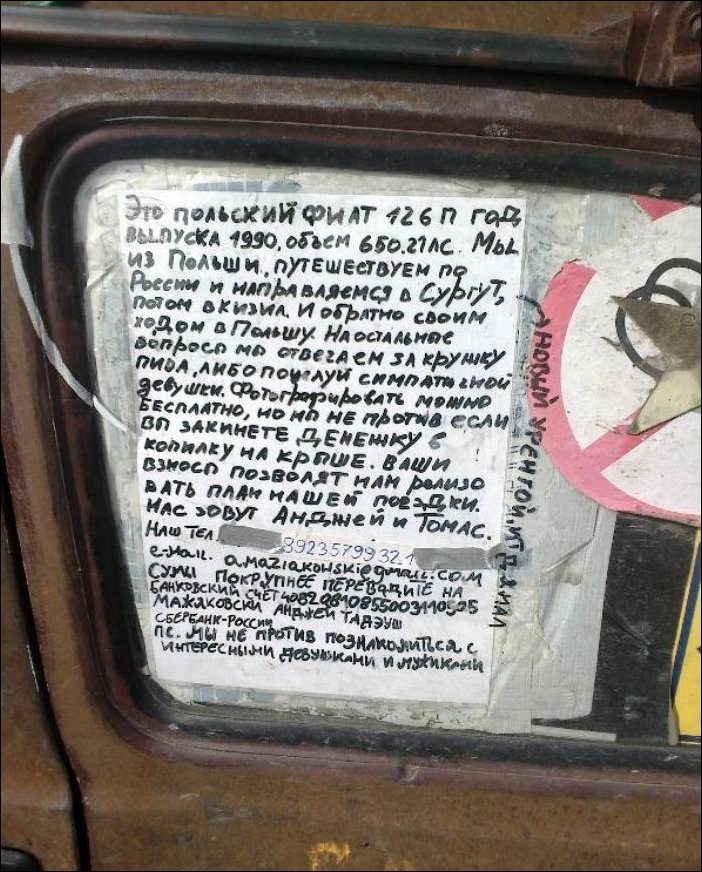 Это польский фиат 126П год
выпуска 1990, объем 650.27ЛС. Мы
из Польши, путешествуем по
России и направляемся в Сургут,
потом в Кизил. И обратно своим
ходом в Польшу. На остальные
вопросы мы отвечаем за кружку
пива, либо поцелуй симпатичной
девушки. Фотографировать можно
бесплатно, но мы не против если
вы закинете денежку в
копилку на крыше. Ваши
взносы позволят нам реализо
вать план нашей поездки.
Нас зовут Анджей и Томас.
Наш тел. 89235799321
e-маil. amaziakowski@gmail.com
Сумы покрупнее переводите на
банковский счёт
Мажяковски Анджей Тадэуш
Сбербанк-России
пс. Мы не против познакомиться с
интересными девушками и мужиками
Новый Уренгой, Ямал